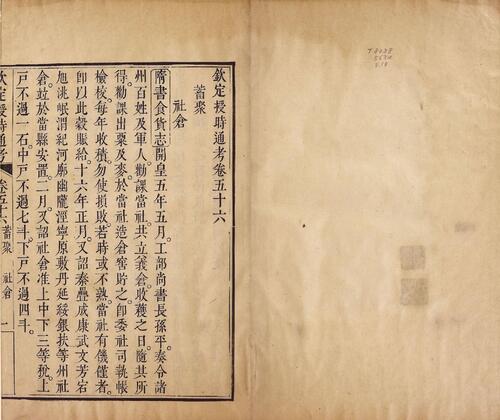 欽定授時通考卷五十六
蓄聚
社倉
隋書食貨志開皇五年五月。工部尚書長孫平。奏令諸
州百姓及軍人。勸課當社。共立義倉。收穫之日。隨其所
得。勸課出粟及麥。於當社造倉窖貯之。卽委社司執帳
檢校。每年收積。勿使損敗。若時或不熟。當社有饑饉者。
卽以此穀賑給。十六年正月。又詔秦疊成康武文芳宕
旭洮岷渭紀河廓豳隴涇寧原敷丹延綏銀扶等州社
倉。竝於當縣安置。二月。又詔社倉准上中下三等稅。上
戶不過一石。中戶不過七斗。下戶不過四斗。
欽定授時通考 卷五十六 蓄聚 社倉 一